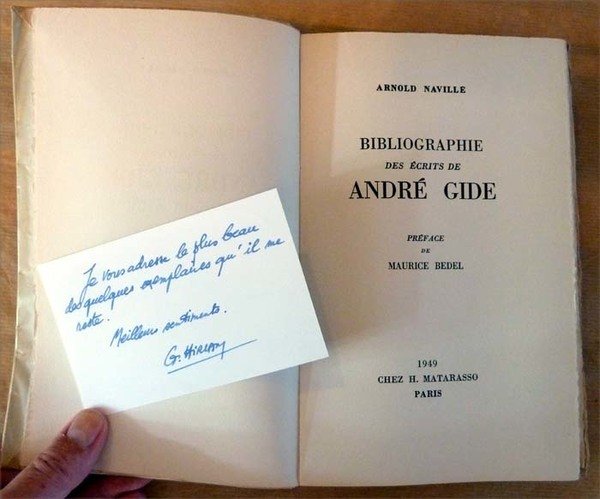 Je vous adresse le plus beau
des quelques exemplaires qu'il me
reste.
Meilleurs sentiments.
ARNOLD NAVILLE
BIBLIOGRAPHIE
DES ÉCRITS DE
ANDRÉ GIDE
PRÉFACE
DE
MAURICE BEDEL
1949
CHEZ H. MATARASSO
PARIS